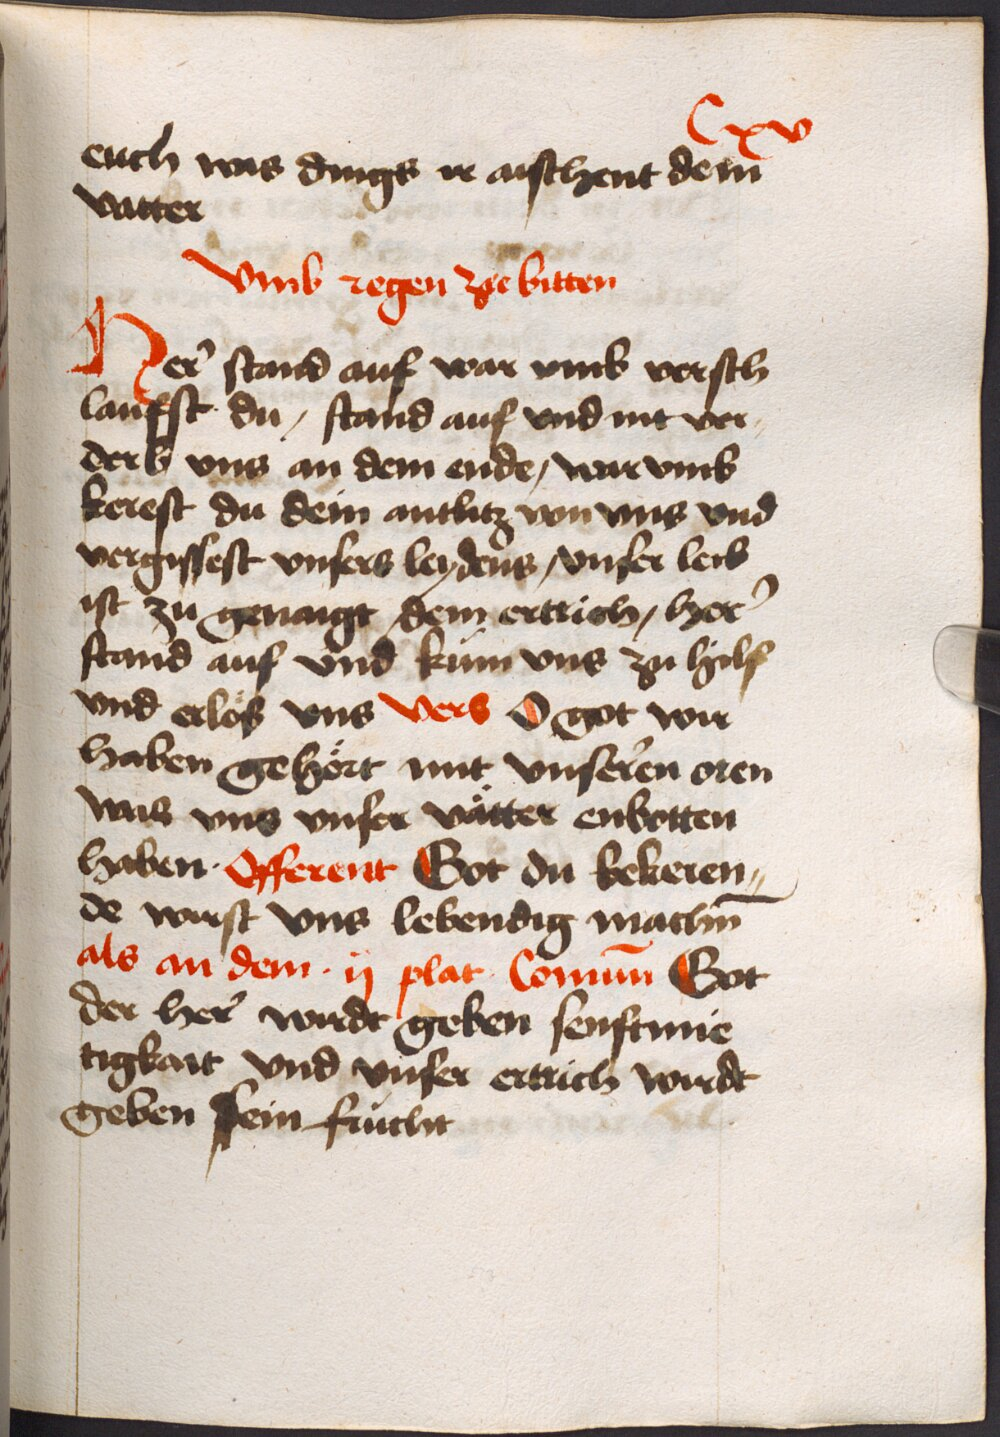 Cxv
euch was dings ir aischent dem
vatter
Vmb regen ze bitten
Her᷑ stand auf war vmb versch
lauffst du / stand auf vnd nit ver
derb vns an dem ende / war vmb
kerest du dein antlitz von vns vnd
vergissest vnsers leydens / vnser leib
ist zu genaigt dem ertrich / her᷑
stand auf vnd kum vns zu hilf
vnd erlöß vns Vers O got wir
haben gehört mit vnseren oren
was vns vnser vätter enbotten
haben · Offerent Got du bekeren⸗
de wirst vns lebendig machn̄
als an dem · ij plat Comun̄ Got
der her᷑ wirdt geben senftmie
tigkait vnd vnser ertrich wirdt
geben sein frucht